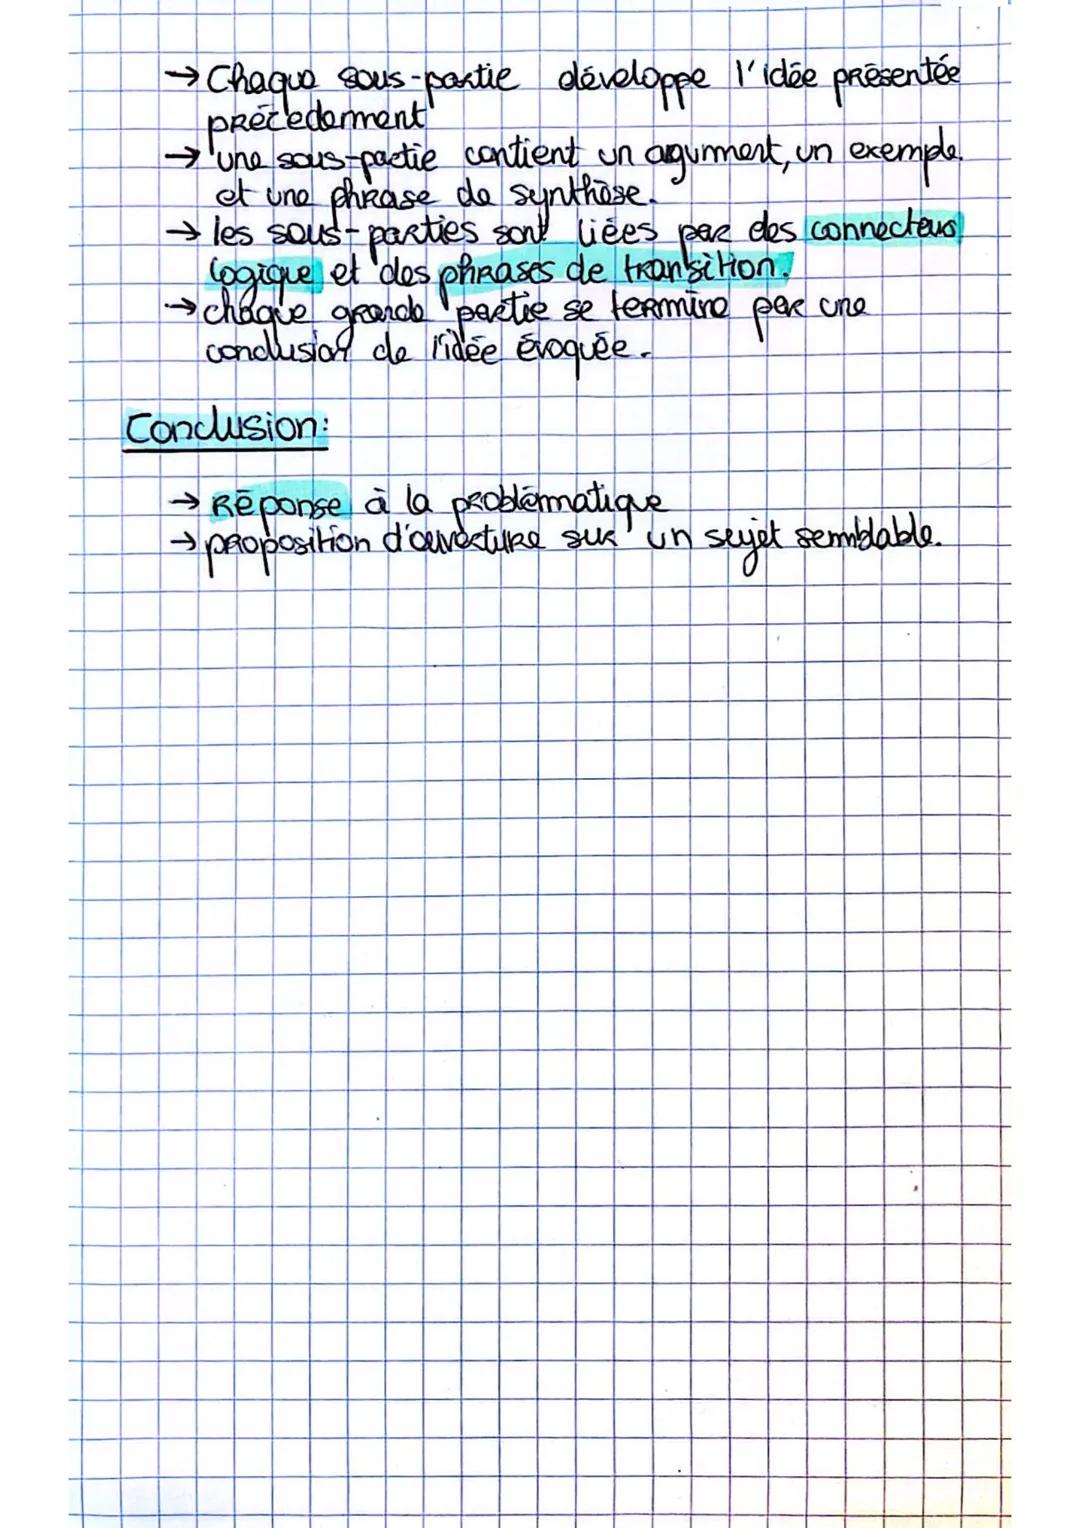 → Chaque sous-partie développe l'idée présentée
précedemment
→ une sous-partie contient un agument, un exemple
et une phrase de synthèse.
→ les sous-parties sont liées par des connecteurs
logique et des phrases de transition.
→ chaque grande partie se termine par une
conclusion de l'idée évoquée.
Conclusion:
→ Réponse à la problématique
→ proposition d'ouverture sur un sujet semblable.